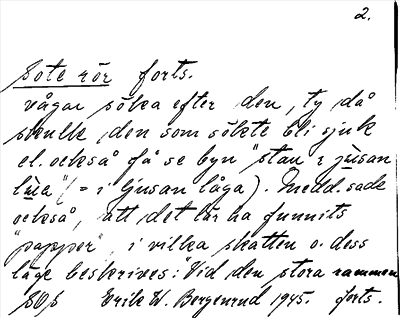 2.
Sote rör forts.
vågar söka efter den, ty då
skulle den som sökte bli sjuk
el. också få se byn "stau i jùsan
lùa" (= i ljusan låga). Medd. sade
också, att det lär ha funnits
"papper", i vilka skatten o. dess
läge beskrives: "Vid den stora rammen
Erik W. Bergenrud 1945. forts.